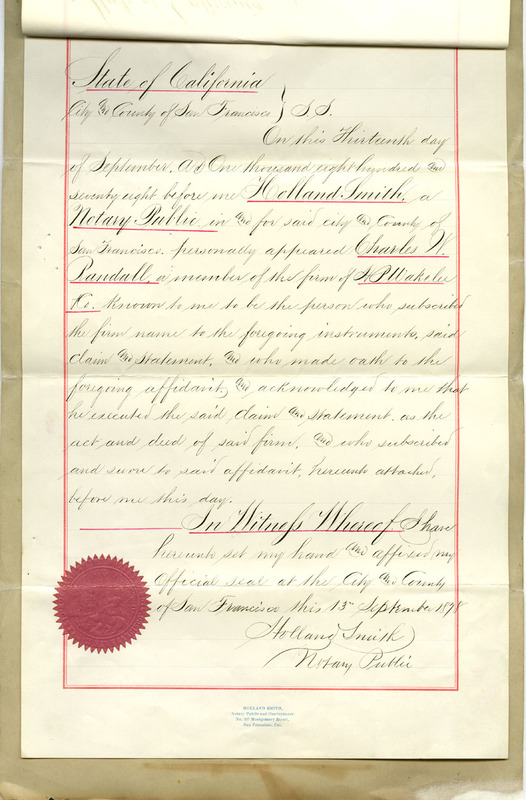 State of California
City and County of San Francisco } S.S.
On this Thirteenth day
of September, A.D. One thousand eight hundred and
seventy eight before me Holland Smith, a
Notary Public, in and for said city and County of
San Francisco, personally appeared Charles W.
Randall, a member of the firm of H.P. Wakelee
& Co. known to me to be the person who subscribed
the firm name to the foregoing instruments, said
claim and statement, and who made oath to the
foregoing affidavit, and acknowledged to me that
he executed the said claim and statement, as the
act and deed of said firm, and who subscribed
and swore to said affidavit, hereunto attached,
before me this day.
In Witness Whereof I have
hereunto set my hand and affixed my
Official seal at the City and County
of San Francisco this 13th September 1878
Holland Smith
Notary Public
HOLLAND SMITH,
Notary Public and Commissioner
No. Montgomery Street,
San Francisco, Cal.